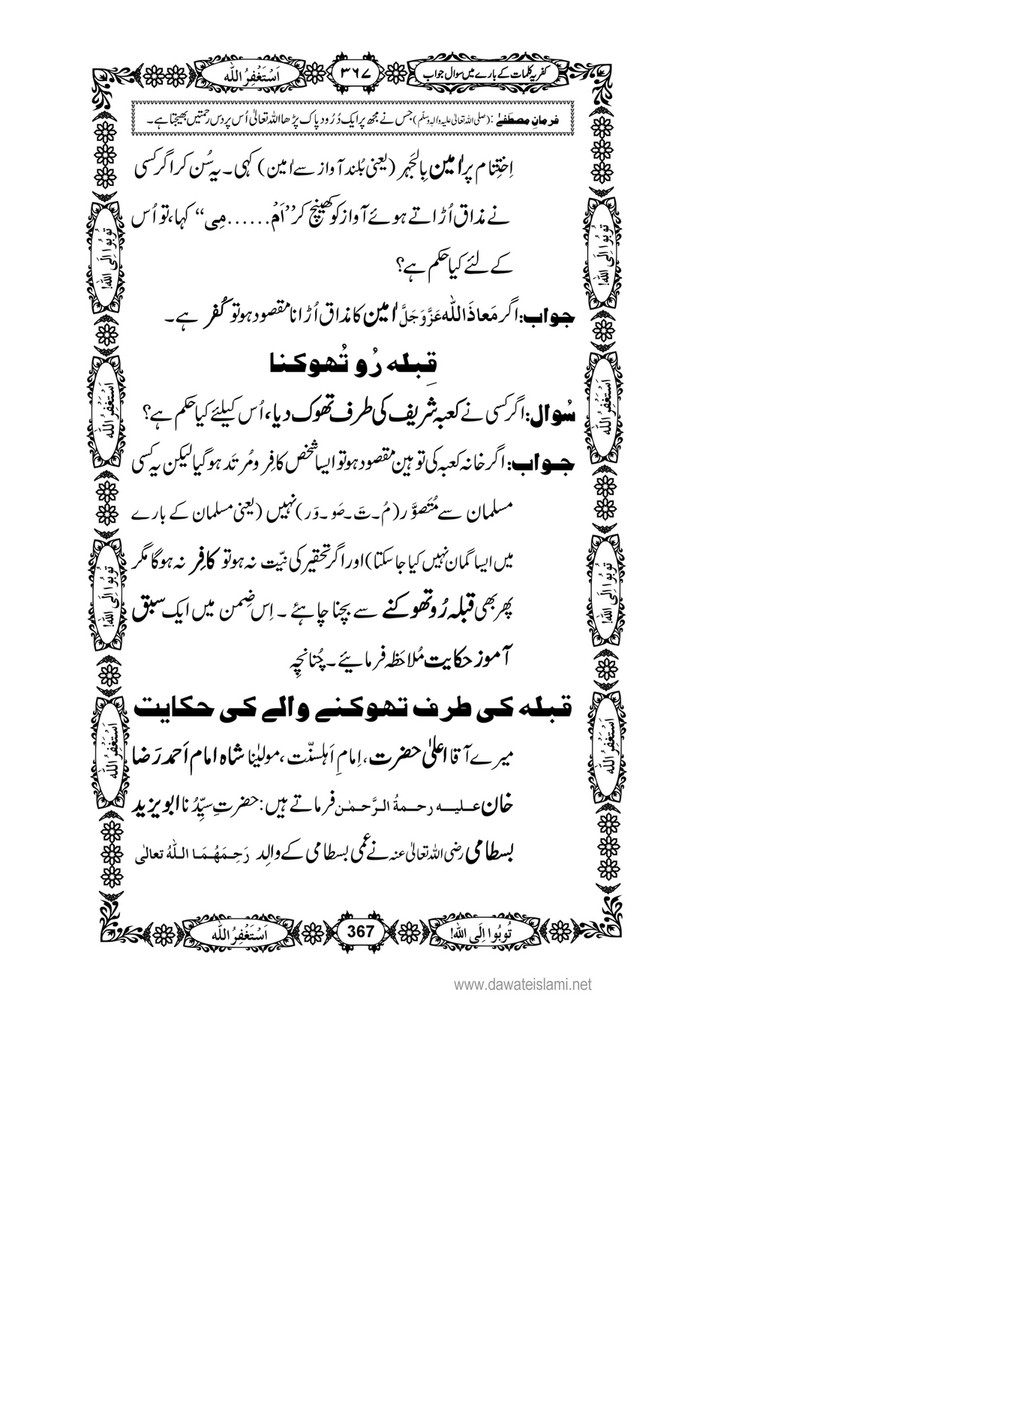 کفریہ کلمات کے بارے میں سوال جواب
۳۶۷
اَسْتَغْفِرُ اللّٰہ
فرمانِ مصطَفٰے : (صلی اللہ تعالیٰ علیہ والہ وسلم) جس نے مجھ پر ایک دُرُود پاک پڑھا اللہ تعالیٰ اُس پر دس رحمتیں بھیجتا ہے۔
اِخْتِتام پر اٰمین بِالجَہر (یعنی بُلند آواز سے اٰمین) کہی۔ یہ سُن کر اگر کسی
نے مذاق اُڑاتے ہوئے آواز کو کھینچ کر ’’اَمْ......مِی‘‘ کہا، تو اُس
کے لئے کیا حکم ہے؟
جواب: اگر مَعاذَاللّٰہ عَزَّوَجَلَّ اٰمین کا مذاق اُڑانا مقصود ہو تو کُفر ہے۔
قِبلہ رُو تُھوکنا
سُوال: اگر کسی نے کعبہ شریف کی طرف تھوک دیا، اُس کیلئے کیا حکم ہے؟
جواب: اگر خانہ کعبہ کی توہین مقصود ہو تو ایسا شخص کافِر و مُرتَد ہو گیا لیکن یہ کسی
مسلمان سے مُتَصَوَّر (مُ۔تَ۔صَو۔وَر) نہیں (یعنی مسلمان کے بارے
میں ایسا گمان نہیں کیا جا سکتا) اور اگر تحقیر کی نیّت نہ ہو تو کافِر نہ ہو گا مگر
پھر بھی قبلہ رُو تھوکنے سے بچنا چاہئے ۔ اِس ضِمن میں ایک سبق
آموز حکایت مُلاحَظہ فرمائیے۔ چُنانچِہ
قبلہ کی طرف تھوکنے والے کی حکایت
میرے آقا اعلیٰ حضرت، اِمامِ اَہلسنّت ،مولیٰنا شاہ امام اَحمد رَضا
خان علیہ رحمۃُ الرَّحمٰن فرماتے ہیں: حضرتِ سیِّدُنا ابو یزید
بسطامی رضی اللہ تعالیٰ عنہ نے عُمی بسطامی کے والِد رَحِمَہُمَا اللّٰہُ تعالٰی
تُوبُوا اِلَی اللّٰہ!
اَسْتَغْفِرُ اللّٰہ
تُوبُوا اِلَی اللّٰہ!
اَسْتَغْفِرُ اللّٰہ
تُوبُوا اِلَی اللّٰہ!
اَسْتَغْفِرُ اللّٰہ
تُوبُوا اِلَی اللّٰہ!
اَسْتَغْفِرُ اللّٰہ
تُوبُوا اِلَی اللّٰہ!
367
اَسْتَغْفِرُ اللّٰہ
www.dawateislami.net